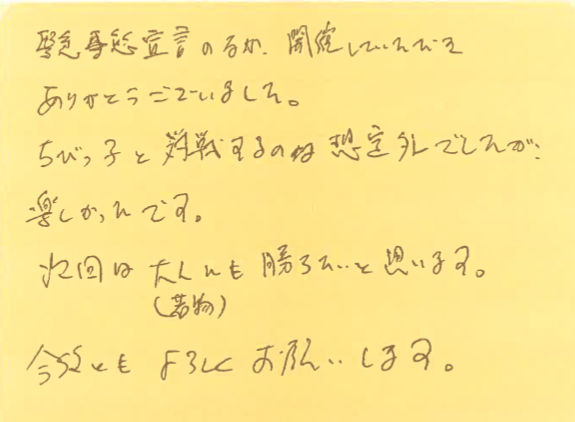 緊急事態宣言のなか、開催していただき
ありがとうございました。
ちびっ子と対戦するのは想定外でしたが、
楽しかったです。
次回は大人にも勝ちたいと思います。
(若物)
今後とも よろしく お願いします。